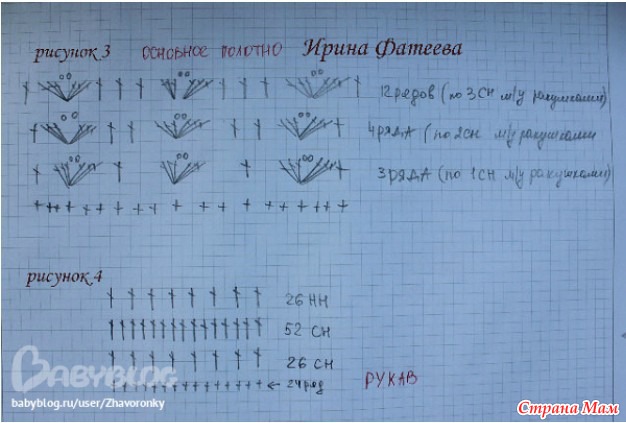 рисунок 3 основное полотно Ирина Фатеева
12 рядов (по 3 СН м/у ракушками)
4 ряда (по 2 СН м/у ракушками
3 ряда (по 1 СН м/у ракушками)
рисунок 4
26 НН
52 СН
26 СН
← 24 ряд
РУКАВ
BABYBLOG
babyblog.ru/user/Zhavoronky
Страна Мам